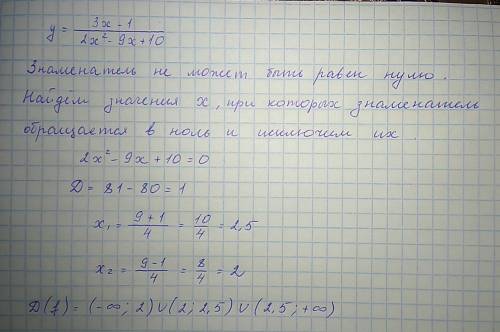 y = (3x - 1)/(2x² - 9x + 10)
Знаменатель не может быть равен нулю.
Найдём значения x, при которых знаменатель
обращается в ноль и исключем их.
2x² - 9x + 10 = 0
D = 81 - 80 = 1
x₁ = (9+1)/4 = 10/4 = 2,5
x₂ = (9-1)/4 = 8/4 = 2
D(f) = (-∞; 2) ∪ (2; 2,5) ∪ (2,5; +∞)